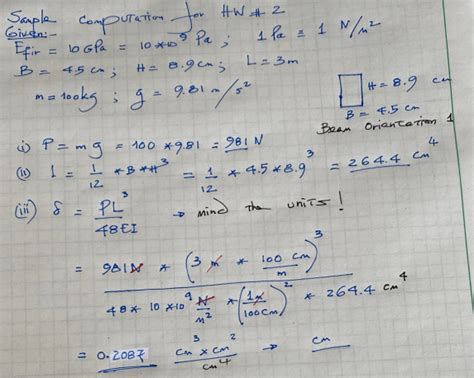 Sample Computation for HW # 2
Given:-
E_fir = 10 GPa = 10*10^9 Pa ; 1 Pa = 1 N/m^2
B = 4.5 cm ; H = 8.9 cm ; L = 3m
m = 100kg ; g = 9.81 m/s^2
H = 8.9 cm
B = 4.5 cm
Beam Orientation 1
i) P = mg = 100 * 9.81 = 981 N
(ii) I = 1/12 * B * H^3 = 1/12 * 4.5 * 8.9^3 = 264.4 cm^4
(iii) δ = PL^3 / 48EI → mind the units !
= 981N * (3 m * 100 cm / m)^3
48 * 10 * 10^9 N/m^2 * (1m / 100cm)^2 * 264.4 cm^4
= 0.2087 cm^3 x cm^2 / cm^4 → cm